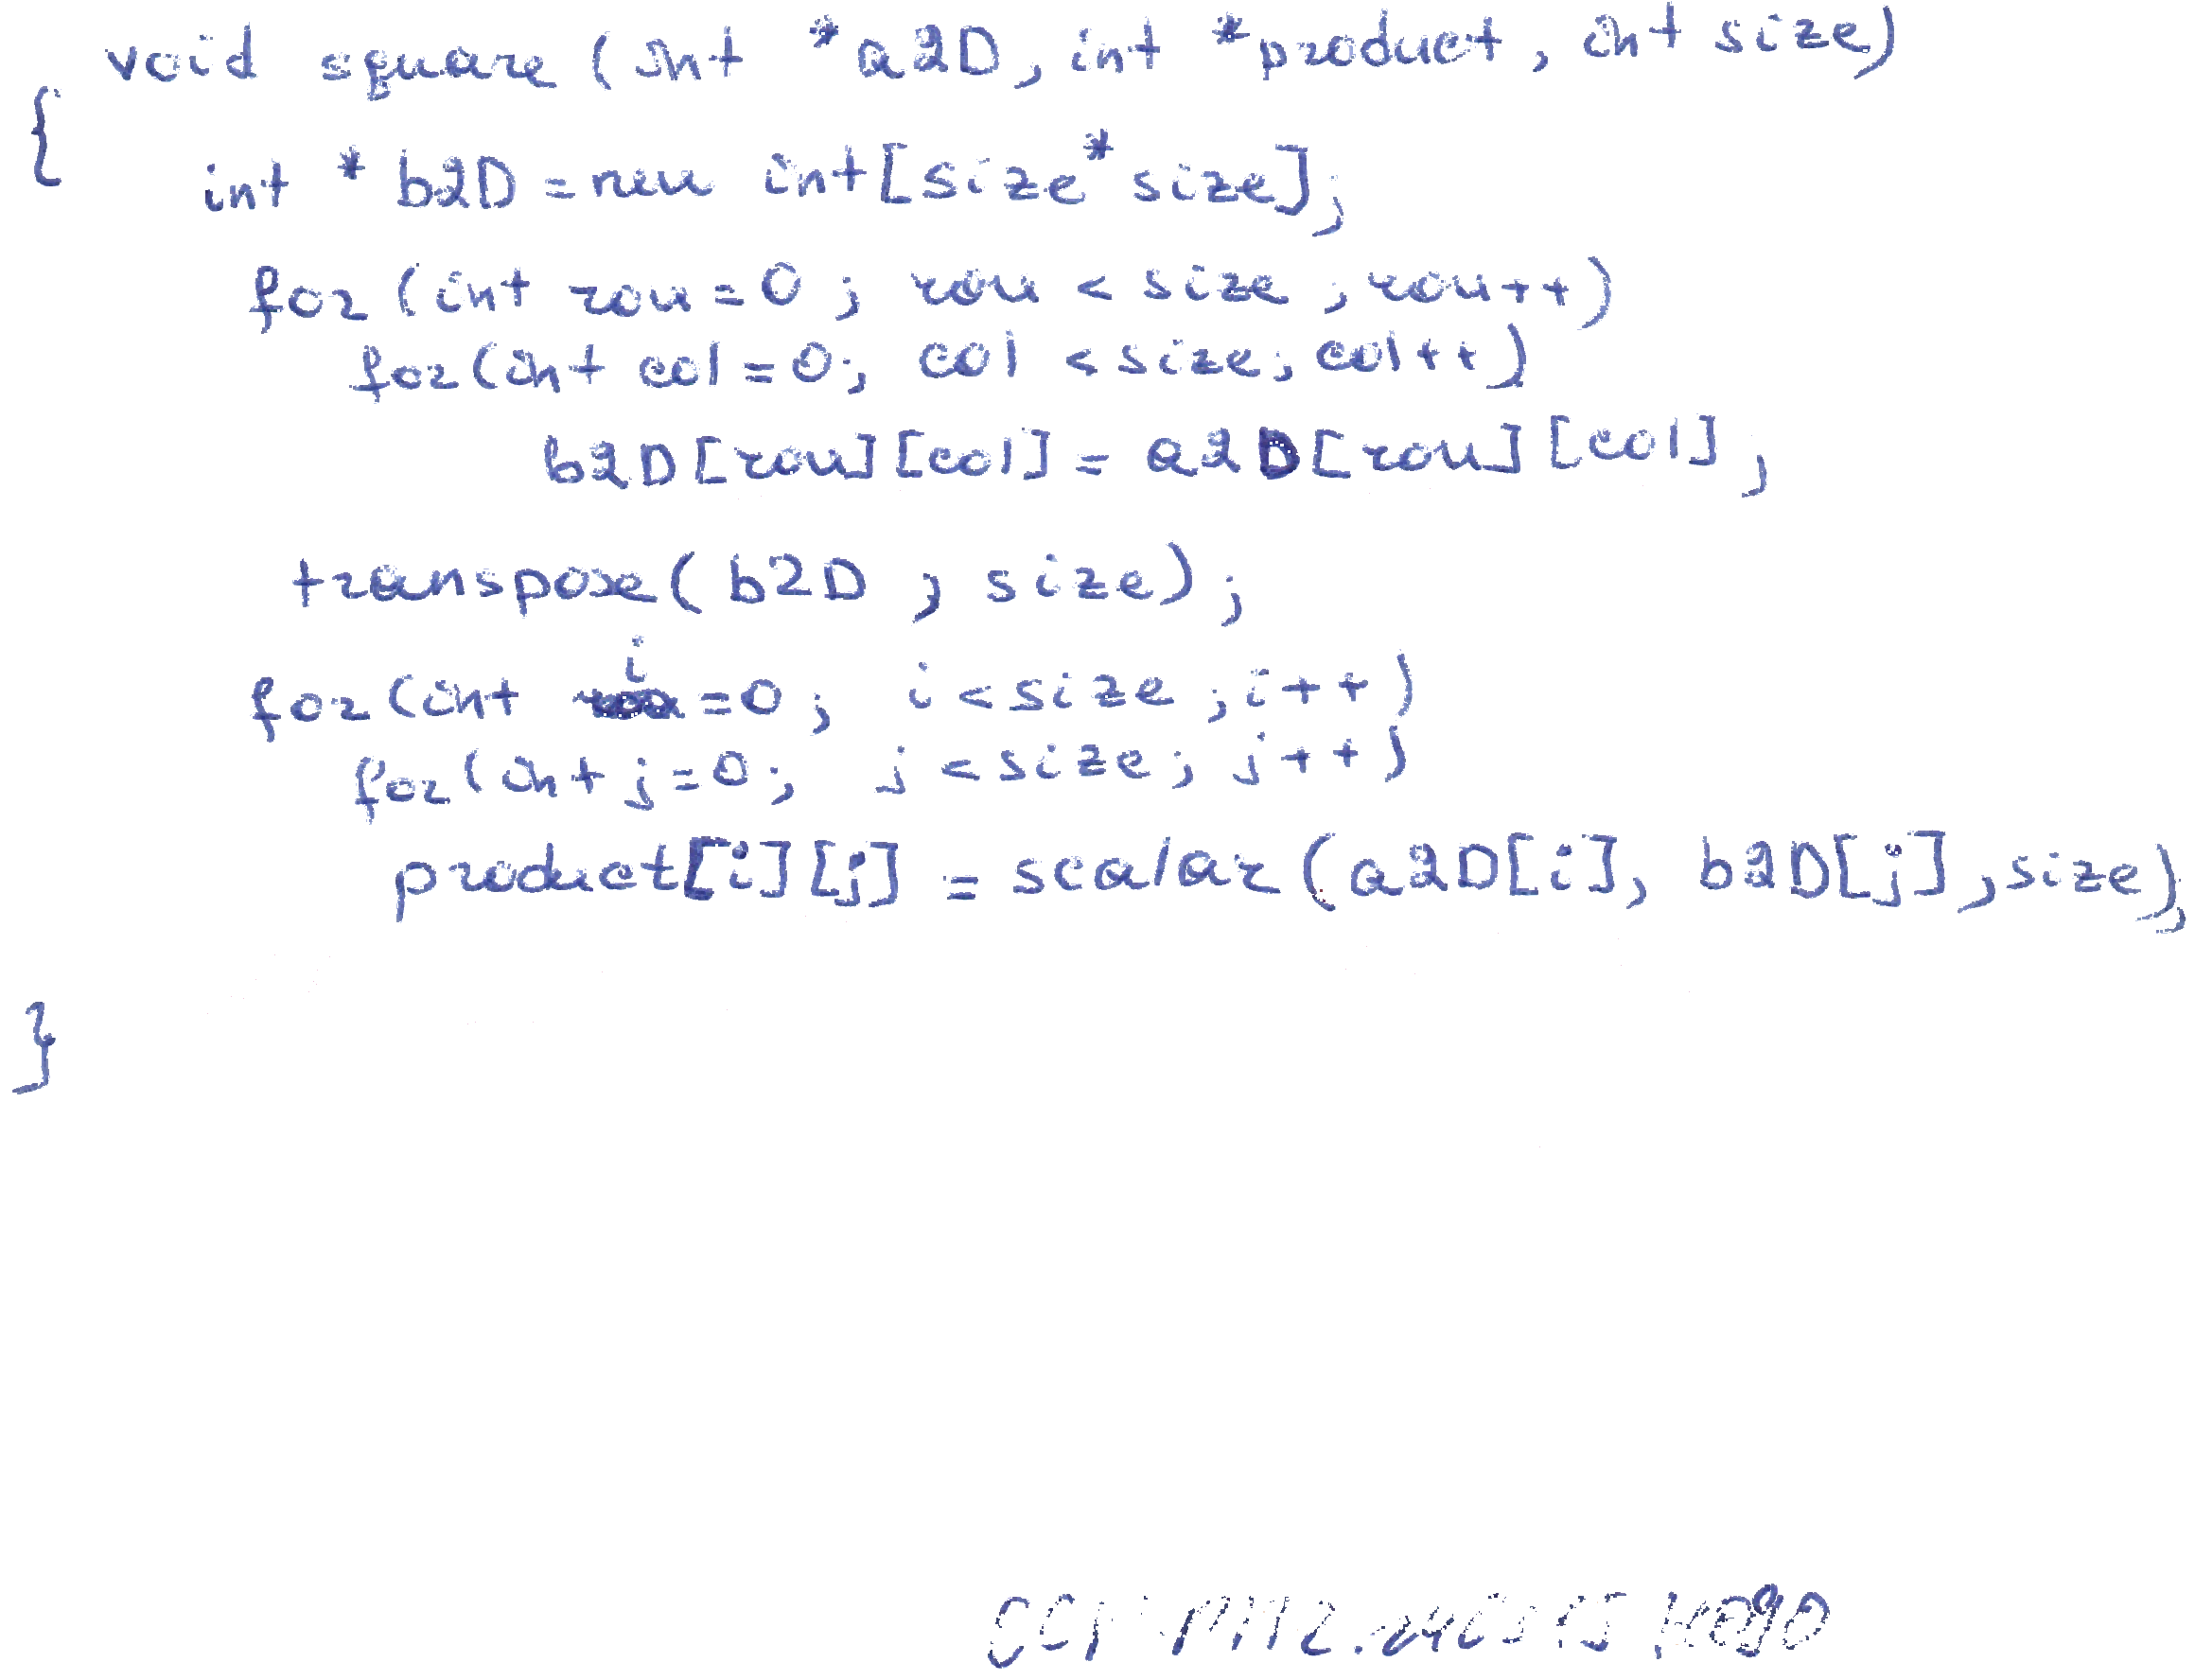 void square (int *a2D, int *product, int size)
{
int * b2D = new int[size*size];
for (int row = 0 ; row < size ; row++)
for (int col = 0; col < size; col++)
b2D[row][col] = a2D[row][col];
transpose( b2D , size);
for (int i = 0 ; i < size ; i++)
for (int j = 0; j < size; j++)
product[i][j] = scalar (a2D[i], b2D[j], size);
}